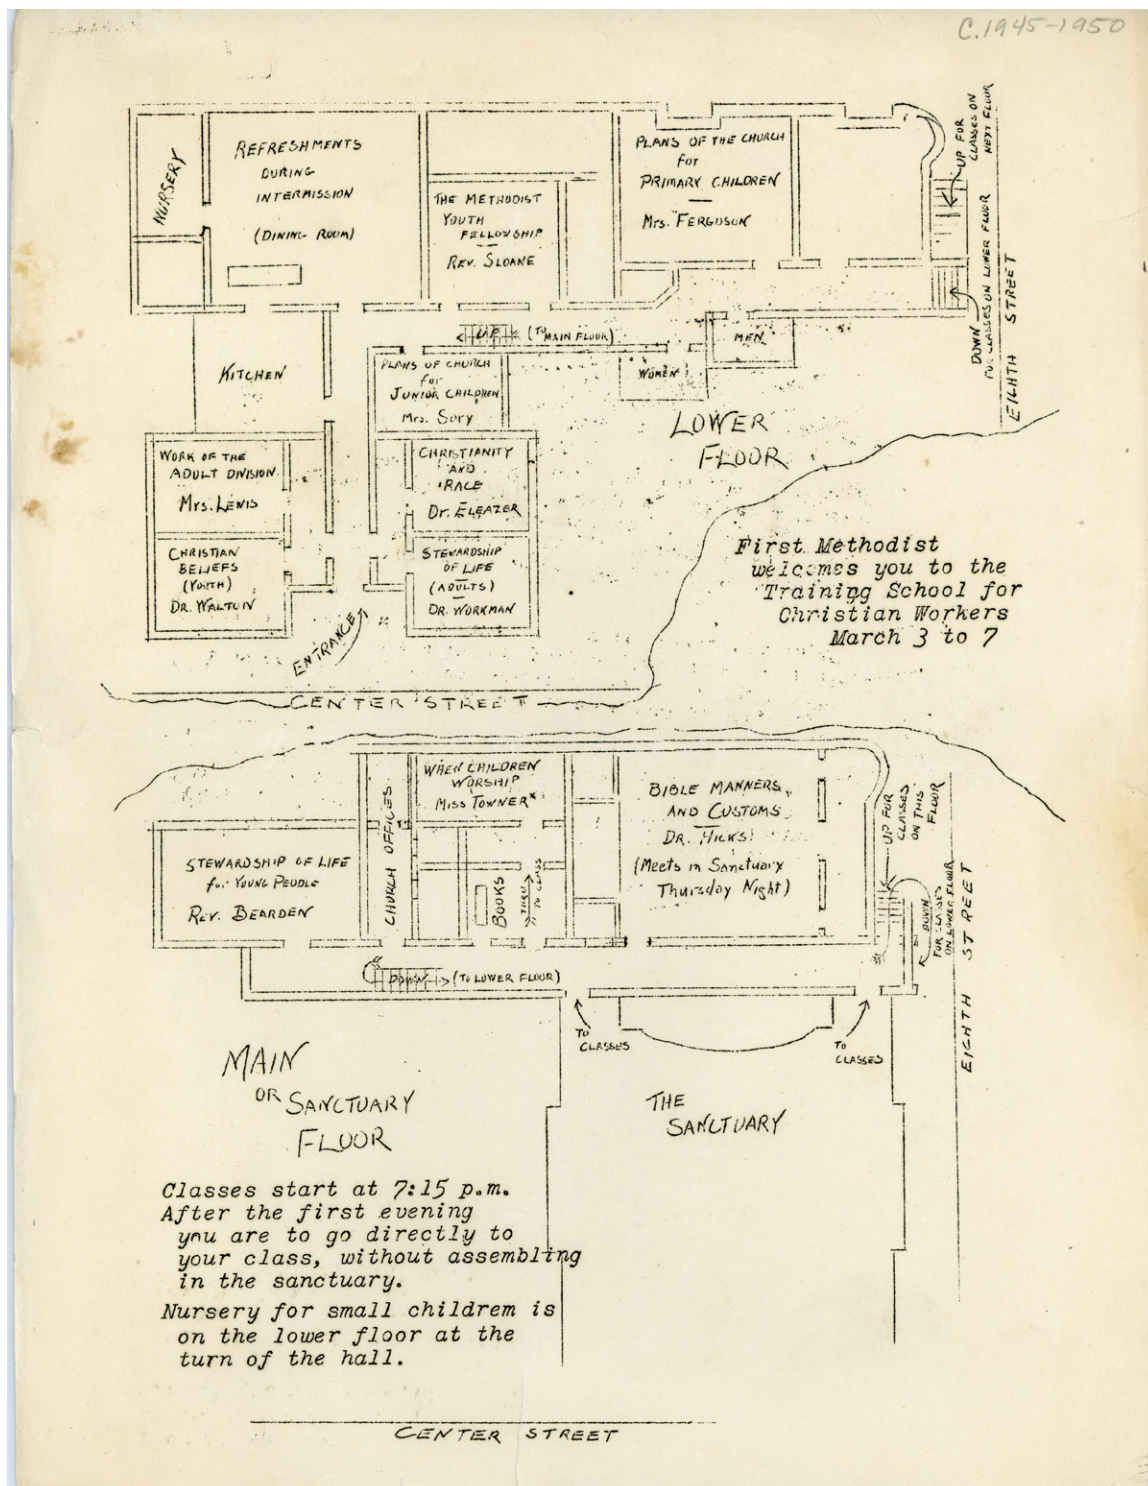 C.1945-1950
NURSERY
REFRESHMENTS
DURING
INTERMISSION
(DINING ROOM)
THE METHODIST
YOUTH
FELLOWSHIP
REV. SLOANE
PLANS OF THE CHURCH
for
PRIMARY CHILDREN
Mrs. FERGUSON
UP FOR
CLASSES ON
NEXT FLOOR
DOWN
FOR CLASSES ON LOWER FLOOR
EIGHTH STREET
UP (TO MAIN FLOOR)
MEN
WOMEN
KITCHEN
PLANS OF CHURCH
for
JUNIOR CHILDREN
Mrs. Sory
LOWER
FLOOR
WORK OF THE
ADULT DIVISION
Mrs. LEWIS
CHRISTIANITY
AND
RACE
Dr. ELEAZER
CHRISTIAN
BELIEFS
(YOUTH)
DR. WALTON
STEWARDSHIP
OF LIFE
(ADULTS)
DR. WORKMAN
ENTRANCE
First Methodist
welcomes you to the
Training School for
Christian Workers
March 3 to 7
CENTER STREET
WHEN CHILDREN
WORSHIP
MISS TOWNER
CHURCH OFFICES
STEWARDSHIP OF LIFE
for YOUNG PEOPLE
REV. BEARDEN
BOOKS
THRU
TO CLASS
BIBLE MANNERS
AND CUSTOMS
DR. HICKS
(Meets in Sanctuary
Thursday Night)
UP FOR
CLASSES
ON THIS
FLOOR
DOWN
FOR CLASSES
ON LOWER FLOOR
EIGHTH STREET
DOWN (TO LOWER FLOOR)
TO
CLASSES
TO
CLASSES
MAIN
OR SANCTUARY
FLOOR
THE
SANCTUARY
Classes start at 7:15 p.m.
After the first evening
you are to go directly to
your class, without assembling
in the sanctuary.
Nursery for small childrem is
on the lower floor at the
turn of the hall.
CENTER STREET